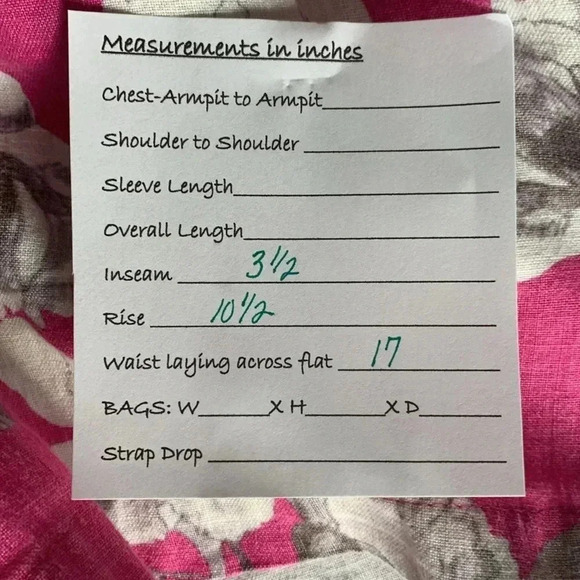 Measurements in inches
Chest-Armpit to Armpit
Shoulder to Shoulder
Sleeve Length
Overall Length
Inseam 3 1/2
Rise 10 1/2
Waist laying across flat 17
BAGS: W______X H______X D______
Strap Drop